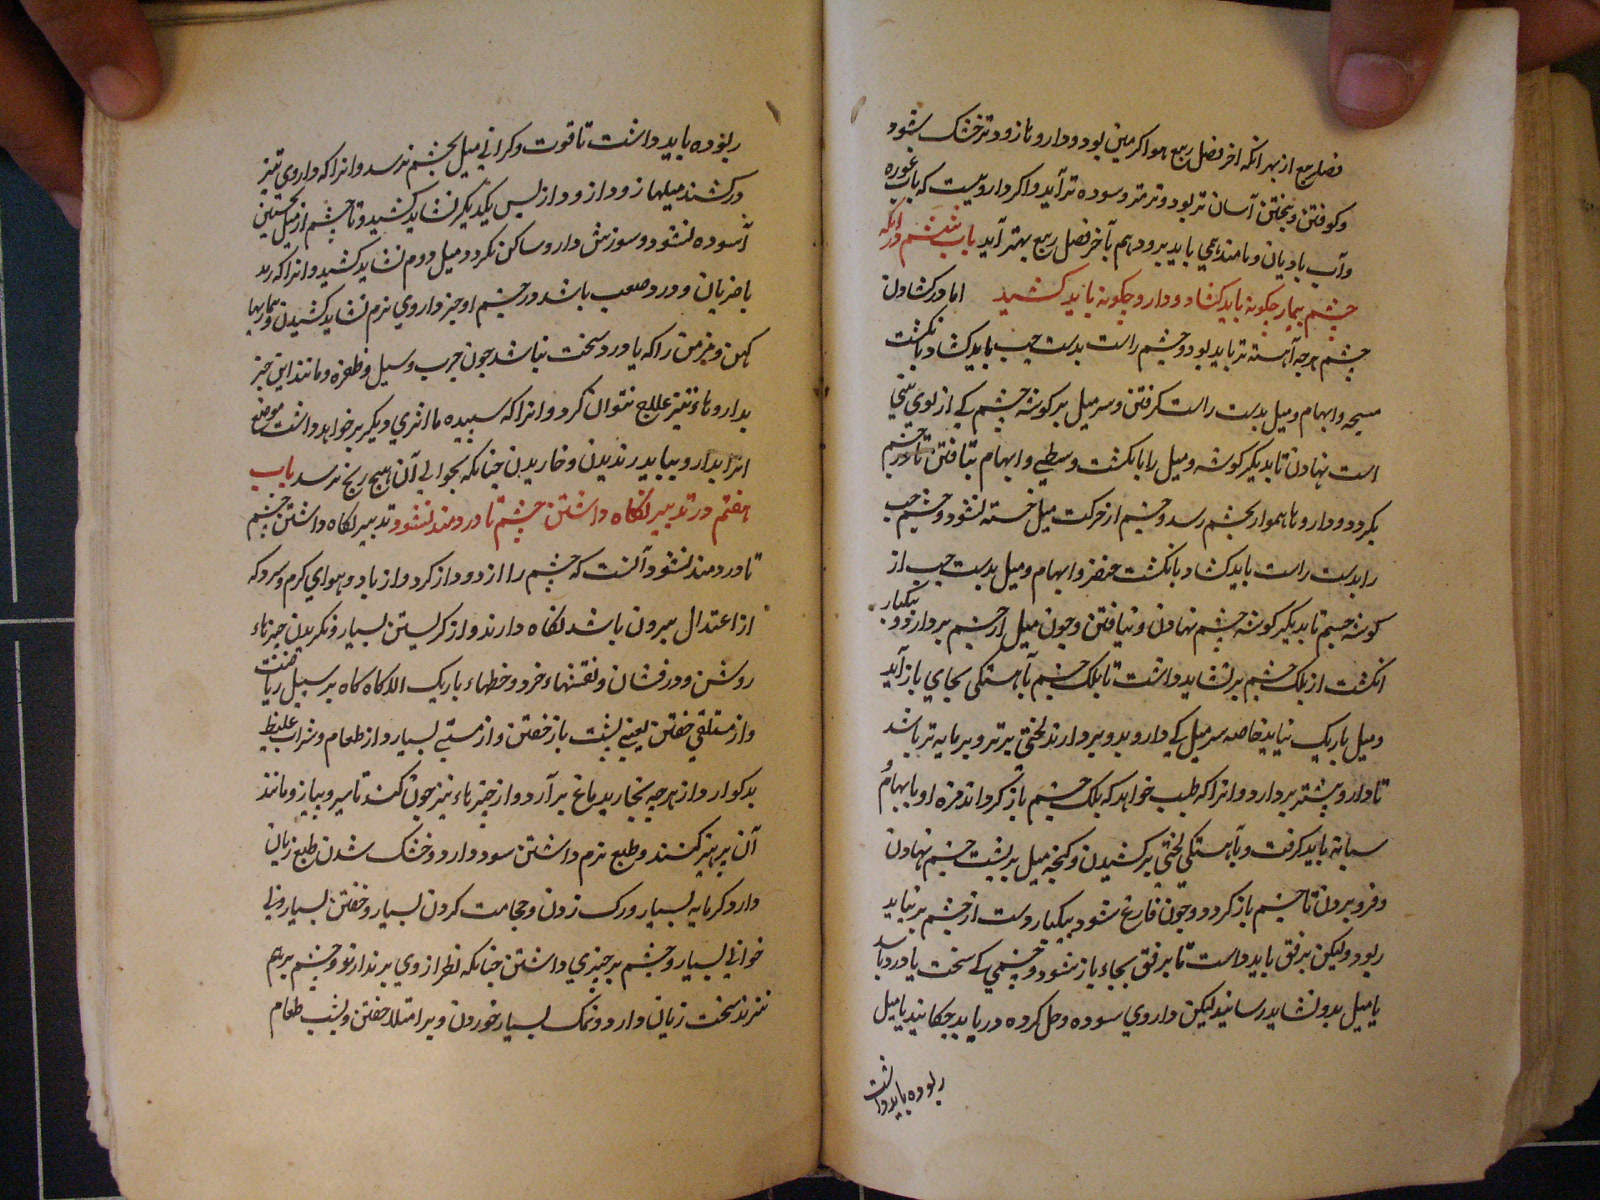 فصل ربیع از بهر انکه اخر فصل ربیع هوا کرمین بود و داروها زودتر خشک شود
و کوفتن و بیختن آسان تر بود و نرمتر و سوده تر آید و اکر داروییست که بآب غوره
و آب بادیان و مانند این می باید پرورد هم بآخر فصل ربیع بهتر آید باب ششم در انکه
چشم بیمار چکونه باید کشاد و دارو چکونه باید کشید اما در کشادن
چشم هرچه آهسته تر باید بود و چشم راست بدست چپ باید کشاد بانکشت
مسبحه و ابهام و میل بدست راست کرفتن و سر میل بر کوشه چشم کی از سوی بینی
است نهادن تا بدیکر کوشه و میل را بانکشت وسطی و ابهام بتافتن تا در چشم
بکردد و داروها هموار بچشم رسد و چشم از حرکت میل خسته نشود و چشم چپ
را بدست راست باید کشاد بانکشت خنصر و ابهام و میل بدست چپ از
کوشه چشم تا بدیکر کوشه چشم نهادن و بتافتن و چون میل از چشم بردارد و بیکبار
انکشت از پلک چشم بر نشاید داشت تا پلک چشم بآهستکی بجای باز آید
و میل باریک نباید خاصه سر میل کی دارو بدو بردارند لختی پرتر و پرمایه تر باشد
تا دارو بیشتر بردارد و انرا که طبیب خواهد که پلک چشم باز کرداند مژه او بابهام و
سبابه باید کرفت و بآهستکی لختی بر کشیدن و کنجه میل بر پشت چشم نهادن
و فرو بردن تا چشم باز کردد و چون فارغ شود بیکبار دست از چشم بر نباید
ربود ولیکن برفق باید داشت تا برفق بجاء باز شود و چشمی کی سخت با درد باشد
یا میل بدو نشاید رسانید لیکن داروی سوده و حل کرده در باید چکانید یا میل
ربوده باید داشت
ربوده باید داشت تا قوت و کرانی میل بچشم نرسد و انرا که داروی تیز
در کشند میلها زود از زود از پس یکدیکر نشاید کشید و تا چشم از میل نخستین
آسوده نشود و سوزش دارو ساکن نکردد میل دوم نشاید کشید و انرا که رمد
با ضربان و درد صعب باشد در چشم او جز داروی نرم نشاید کشیدن و بیماریها
کهن و مزمن را که با درد سخت نباشد چون جرب و سبل و ظفره و مانند این جز
بداروهاء تیز علاج نتوان کرد و انرا که سپیده یا اثری دیکر بر خواهد داشت موضع
انرا بدارو بباید رندیدن و خاریدن چنانکه بحوالی آن هیچ رنج نرسد باب
هفتم در تدبیر نکاه داشتن چشم تا دردمند نشود تدبیر نکاه داشتن چشم
تا دردمند نشود آنست که چشم را از دود از کرد و از باد و هوای کرم و سرد که
از اعتدال بیرون باشد نکاه دارند و از کریستن بسیار و نکریدن چیزهاء
روشن و درفشان و نقشهاء خرد و خطهاء باریک الا کاه کاه بر سبیل ریاضت
و از مستلقی خفتن یعنی بپشت باز خفتن و از مستی بسیار و از طعام و شراب غلیظ
بدکوار و از هرچه بخار بدماغ برآرد و از چیزهاء تیز چون کندنا سیر و پیاز و مانند
آن پرهیز کنند و طبع نرم داشتن سود دارد و خشک شدن طبع زیان
دارد و کرمابه بسیار و رک زدن و حجامت کردن بسیار و خفتن بسیار و بی
خوابی بسیار و چشم بر چیزی داشتن چنانکه نظر از وی بر ندارند و چشم بر هم
نزنند سخت زیان دارد و نمک بسیار خوردن و بر امتلا خفتن و بشب طعام